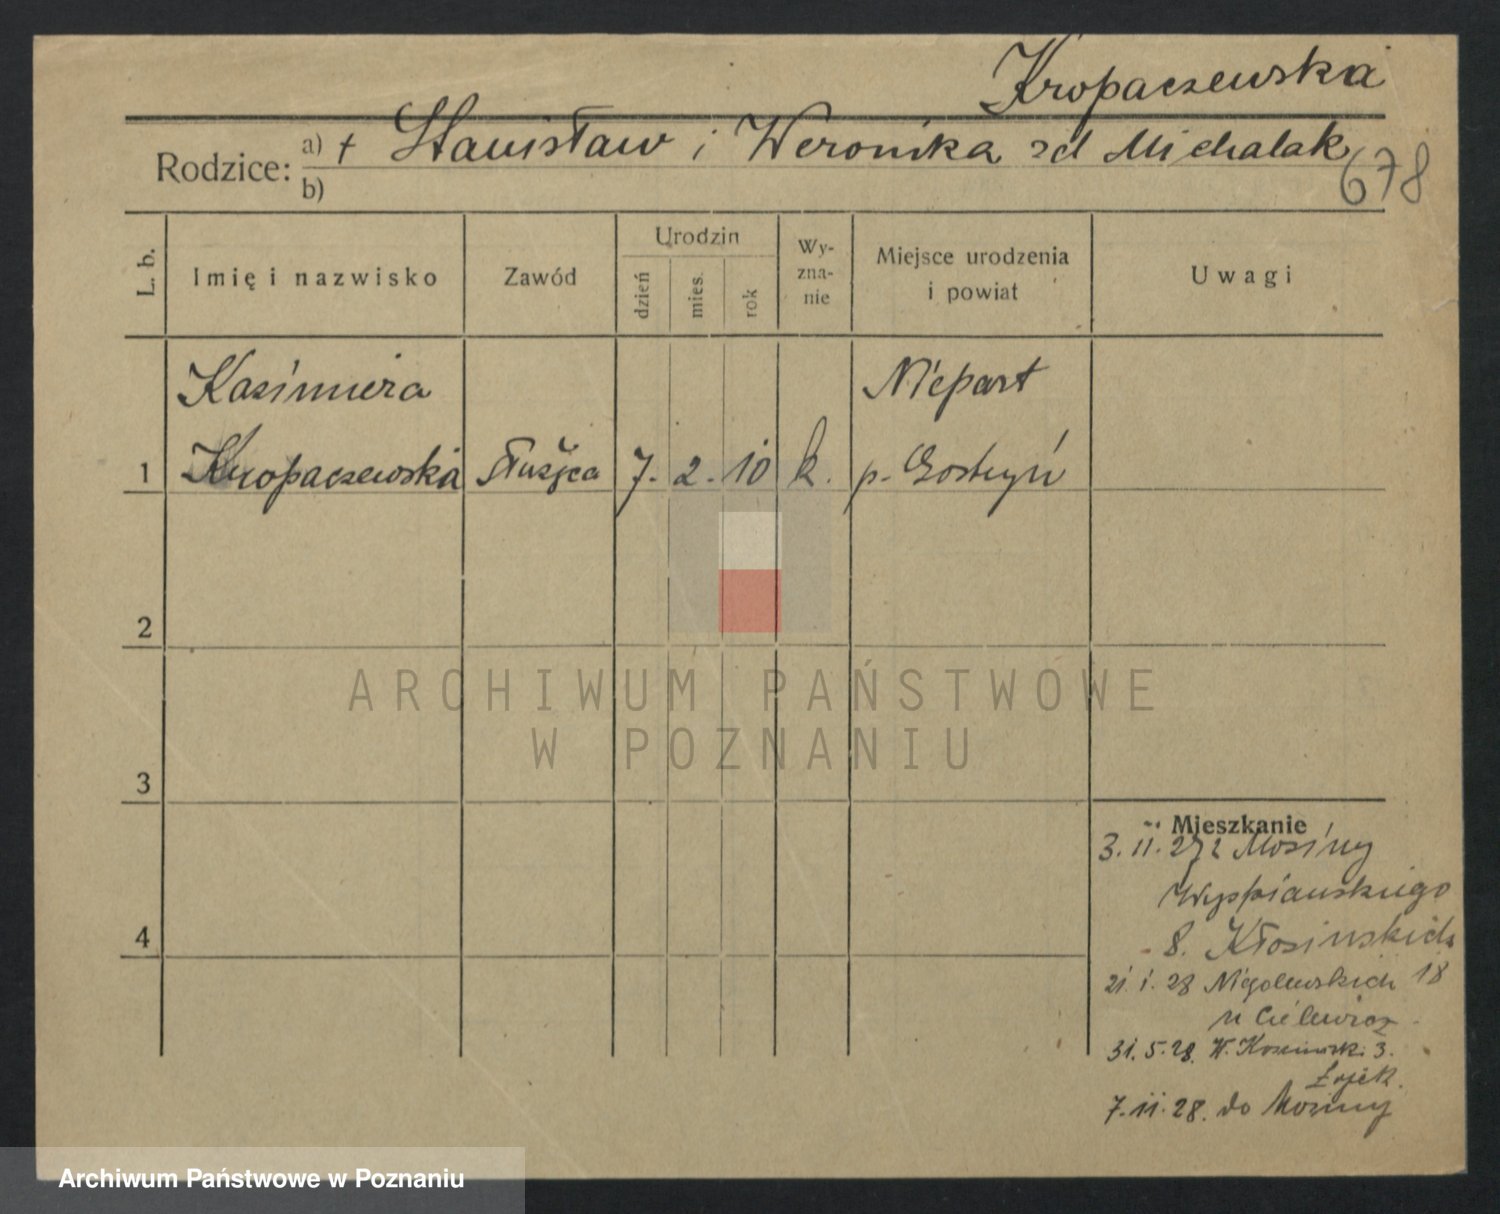 Kropaczewska
Rodzice: a) + Stanisław i Weronika zd Michalak
b)
678
L. b.
Imię i nazwisko
Zawód
Urodzin
dzień
mies.
rok
Wy-
zna-
nie
Miejsce urodzenia
i powiat
Uwagi
Kazimiera
Niepart
1 Kropaczewska służąca 7. 2. 10 k. p. Gostyń
2
ARCHIWUM PAŃSTWOWE
W POZNANIU
3
Mieszkanie
3. 11. 27 z Mosiny
Wyspiańskiego
8. Kłosinskich
4
21. 1. 28 Niegolewskich 18
31. 5. 28. 3.
7. 11. 28. do Mosiny
Archiwum Państwowe w Poznaniu